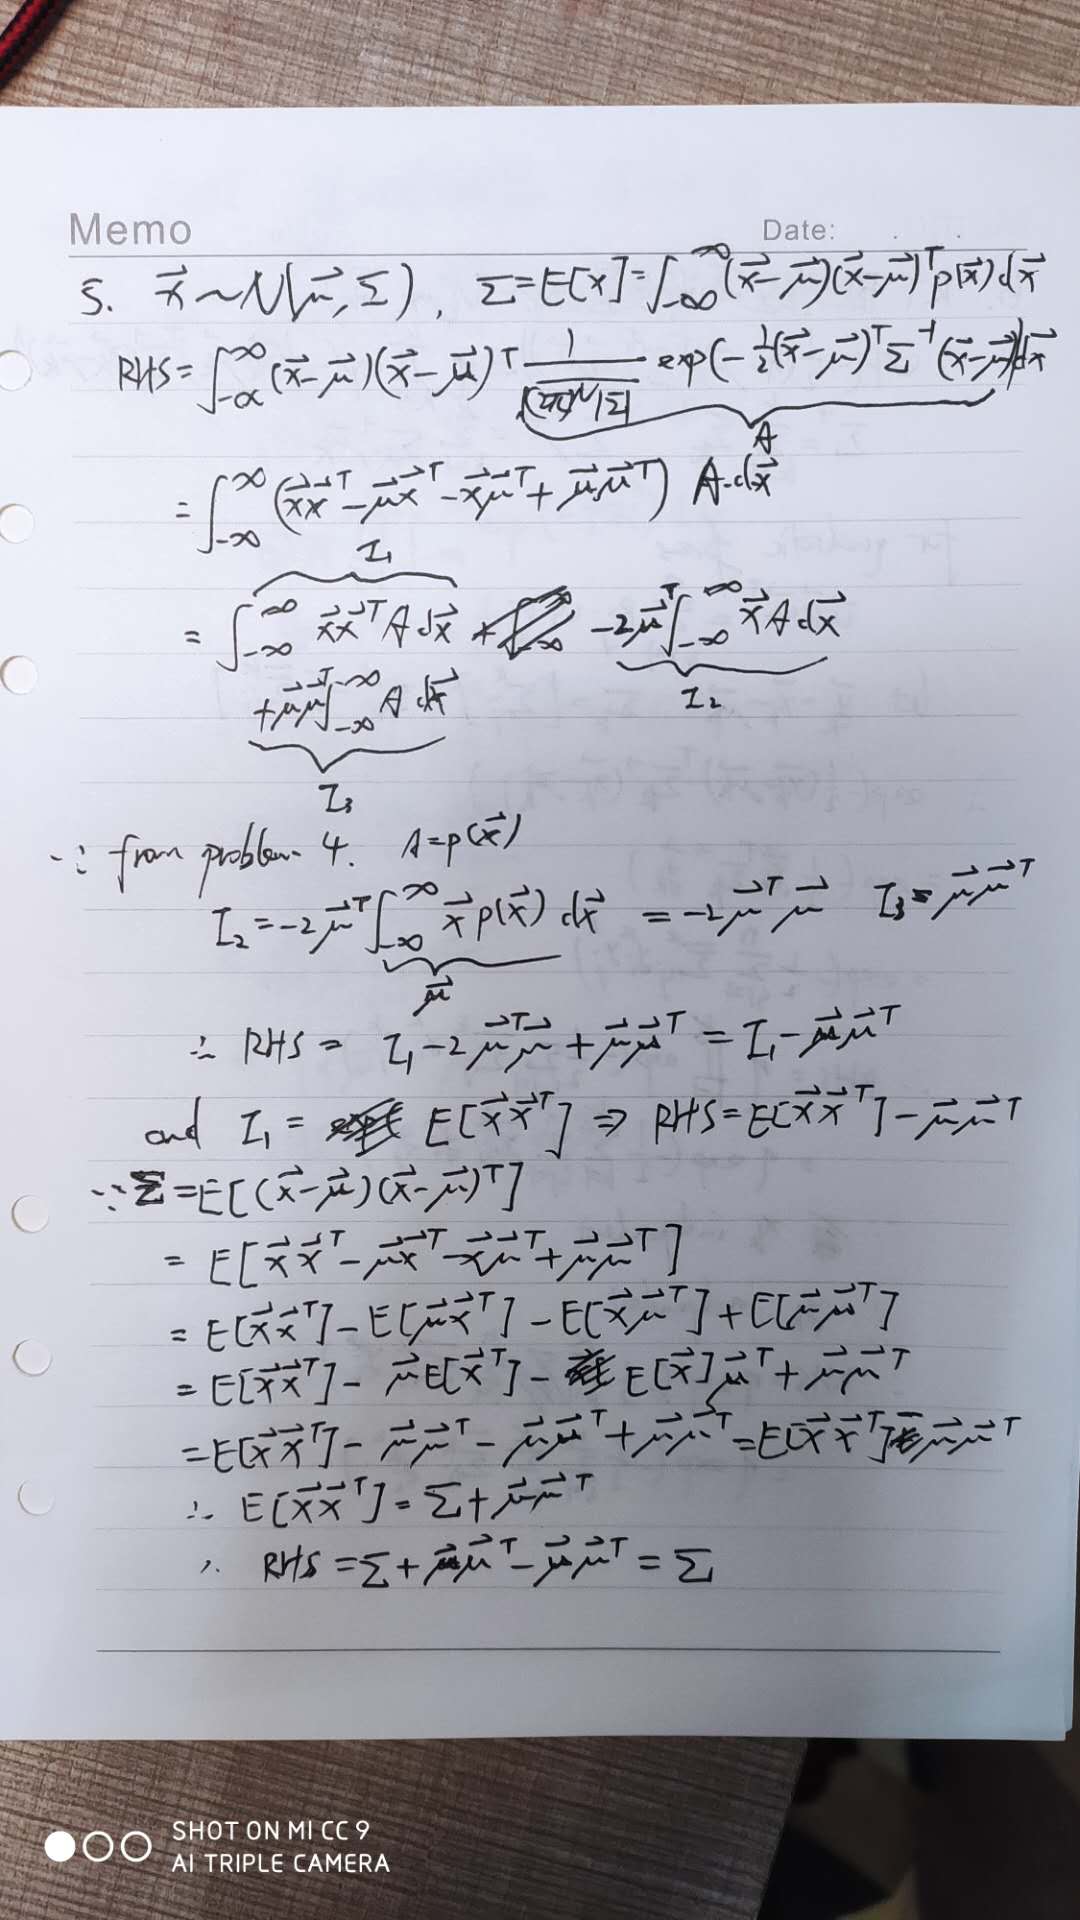 Memo
Date: . .
5. x⃗ ~ N(μ⃗, Σ), Σ = E[x] = ∫_{-∞}^{∞} (x⃗-μ⃗)(x⃗-μ⃗)^T p(x⃗) dx⃗
RHS = ∫_{-∞}^{∞} (x⃗-μ⃗)(x⃗-μ⃗)^T 1/√((2π)^N|Σ|) exp(-½(x⃗-μ⃗)^T Σ^{-1} (x⃗-μ⃗)) dx⃗
A
= ∫_{-∞}^{∞} (x⃗x⃗^T - μ⃗x⃗^T - x⃗μ⃗^T + μ⃗μ⃗^T) A·dx⃗
I₁
= ∫_{-∞}^{∞} x⃗x⃗^T A dx⃗ -2μ⃗^T ∫_{-∞}^{∞} x⃗ A dx⃗
I₂
+ μ⃗μ⃗^T ∫_{-∞}^{∞} A dx⃗
I₃
∵ from problem 4. A = p(x⃗)
I₂ = -2μ⃗^T ∫_{-∞}^{∞} x⃗ p(x⃗) dx⃗ = -2μ⃗^T μ⃗ I₃ = μ⃗μ⃗^T
μ⃗
∴ RHS = I₁ - 2μ⃗^Tμ⃗ + μ⃗μ⃗^T = I₁ - μ⃗μ⃗^T
and I₁ = E[x⃗x⃗^T] ⇒ RHS = E[x⃗x⃗^T] - μ⃗μ⃗^T
∵ Σ = E[(x⃗-μ⃗)(x⃗-μ⃗)^T]
= E[x⃗x⃗^T - μ⃗x⃗^T - x⃗μ⃗^T + μ⃗μ⃗^T]
= E[x⃗x⃗^T] - E[μ⃗x⃗^T] - E[x⃗μ⃗^T] + E[μ⃗μ⃗^T]
= E[x⃗x⃗^T] - μ⃗E[x⃗^T] - E[x⃗]μ⃗^T + μ⃗μ⃗^T
= E[x⃗x⃗^T] - μ⃗μ⃗^T - μ⃗μ⃗^T + μ⃗μ⃗^T = E[x⃗x⃗^T] - μ⃗μ⃗^T
∴ E[x⃗x⃗^T] = Σ + μ⃗μ⃗^T
∴ RHS = Σ + μ⃗μ⃗^T - μ⃗μ⃗^T = Σ
SHOT ON MI CC 9
AI TRIPLE CAMERA